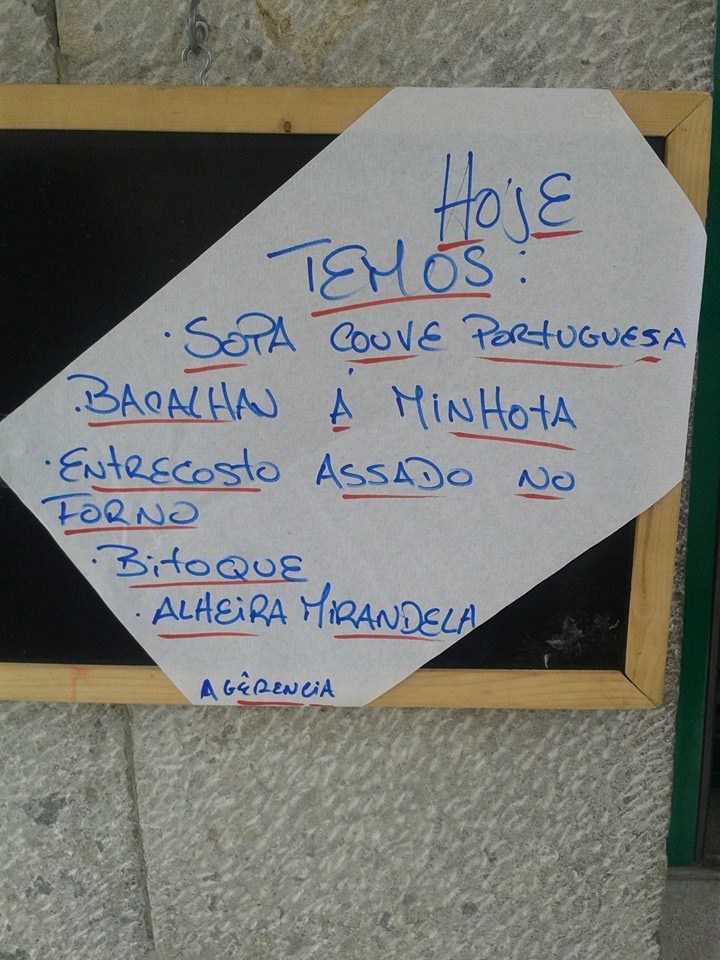 HOJE
TEMOS:
· SOPA COUVE PORTUGUESA
· BACALHAU Á MINHOTA
· ENTRECOSTO ASSADO NO
FORNO
· BITOQUE
· ALHEIRA MIRANDELA
A GÊRENCIA